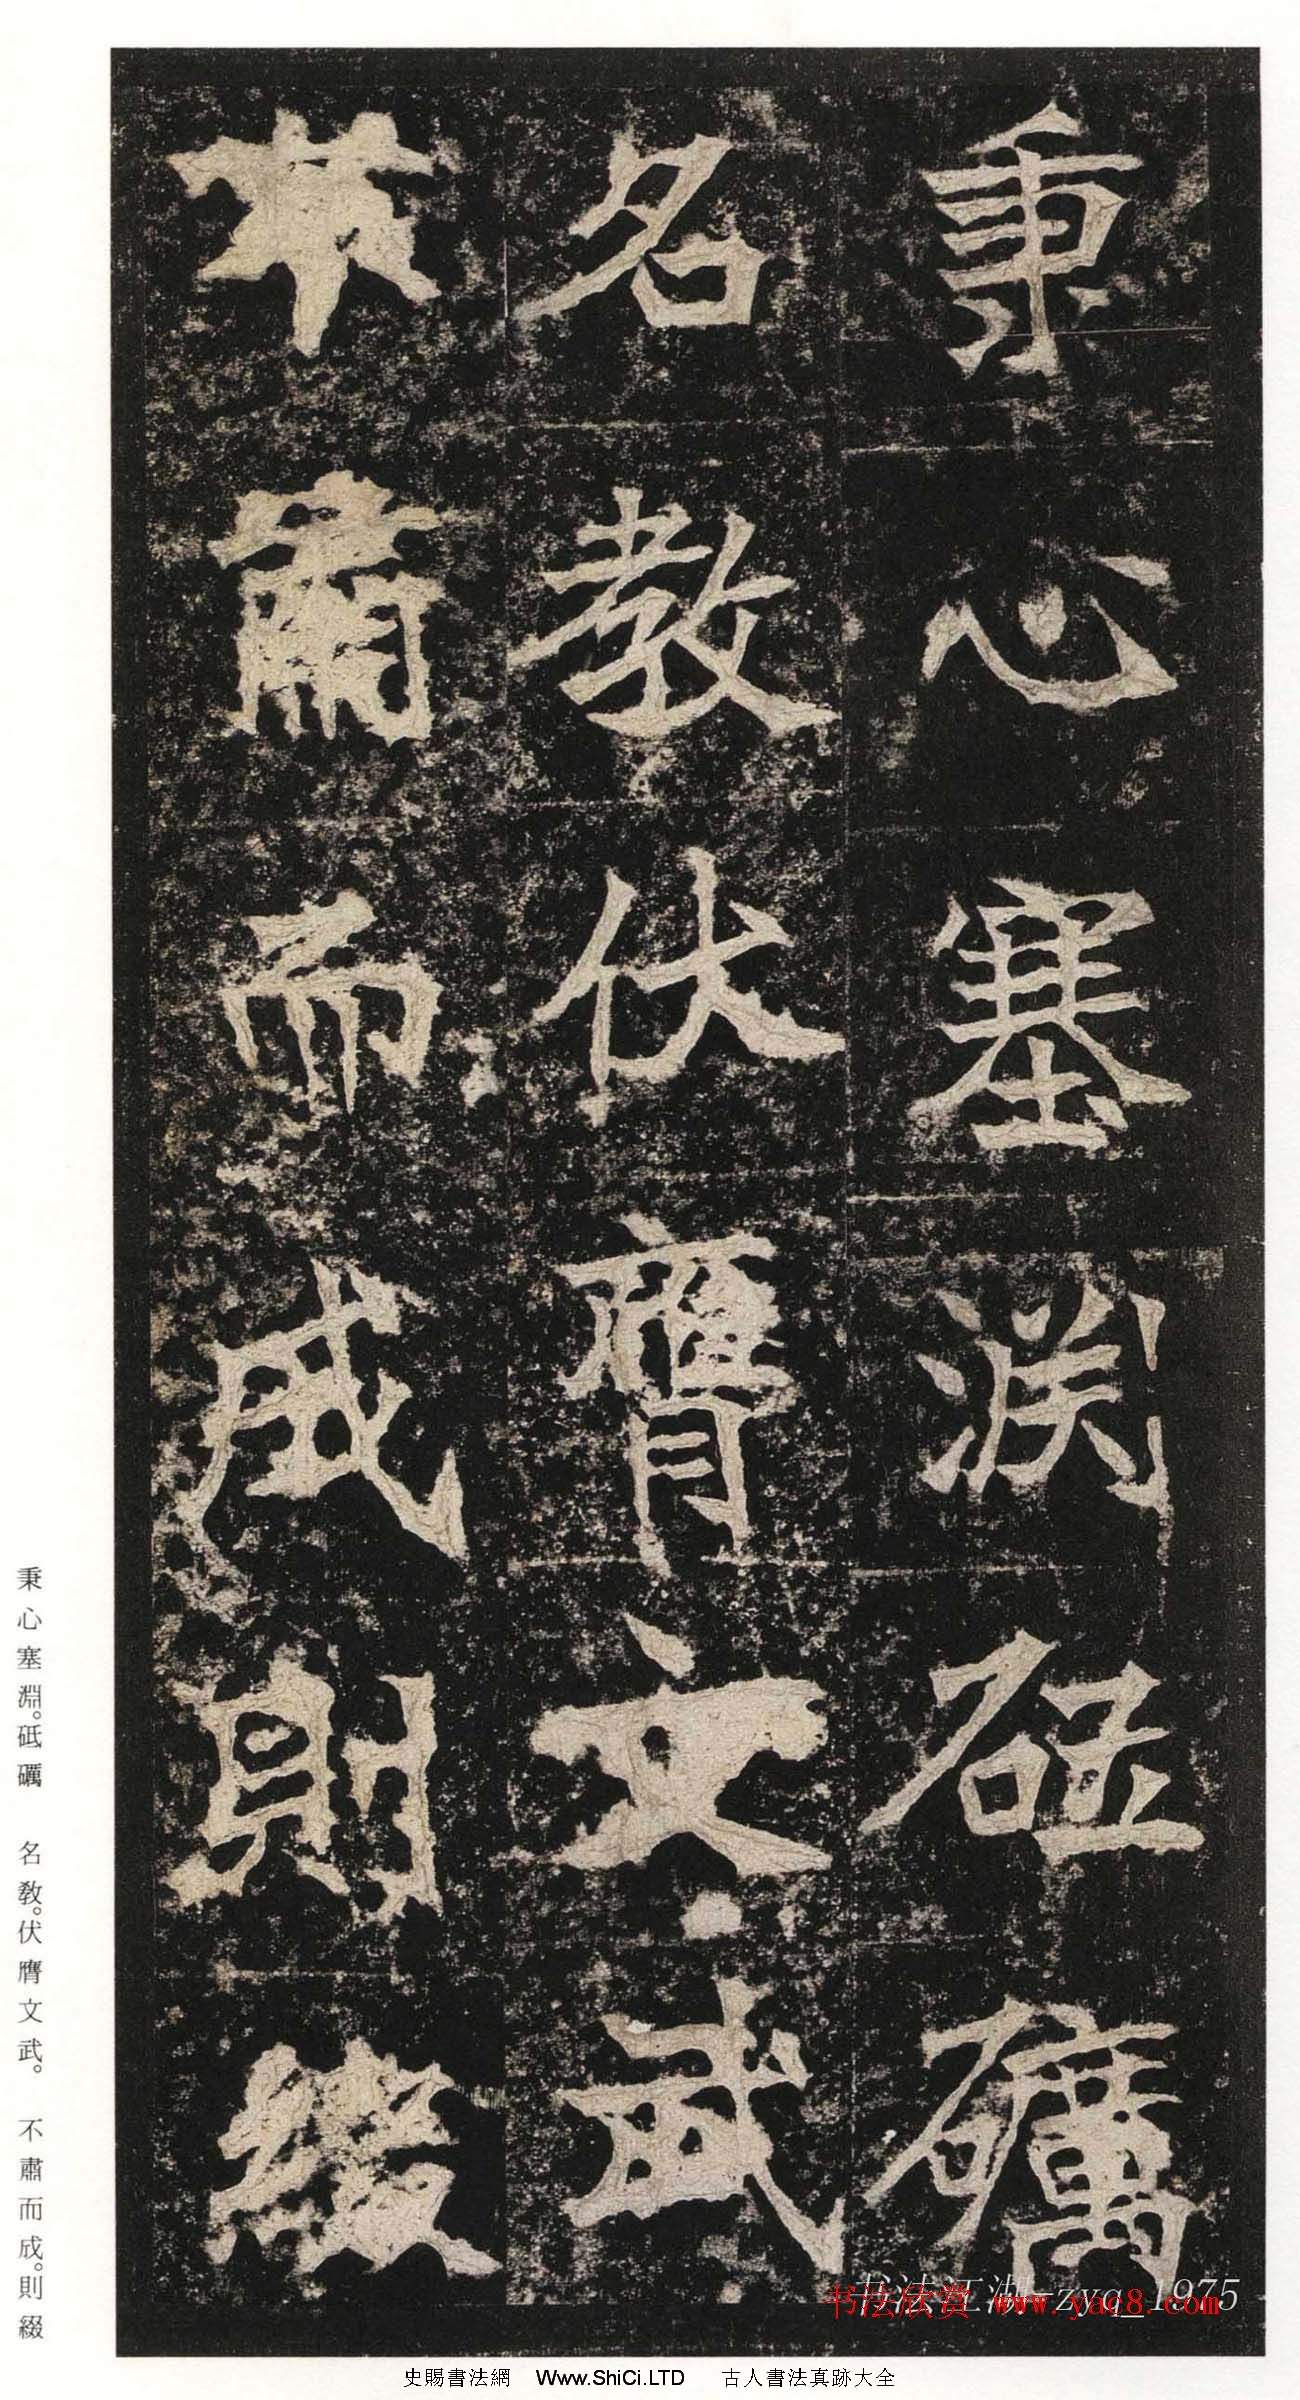 秉心塞淵砥礪
名教伏膺文武
不肅而成則綴
秉心塞淵。砥礪 名教。伏膺文武。 不肅而成。則綴
书法江湖-zyq_1975
书法欣赏 www.yac8.com
史賜書法網 Www.ShiCi.LTD 古人書法真跡大全